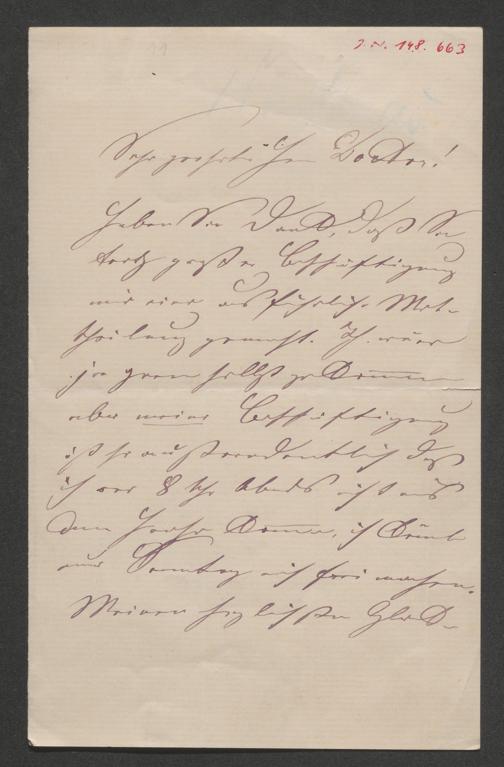 J. N. 148.663
Sehr geehrter Herr Doctor!
Haben Sie Dank, daß Sie
trotz großer Beschäftigung
mir eine ausführliche Mit-
theilung gemacht. Ich wäre
ja gern selbst gekommen
aber meine Beschäftigung
ist so außerordentlich daß
ich vor 8 Uhr Abends nicht aus
dem Hause komme, ich könnte
nur Sonntag mich frei machen.
Meinen herzlichsten Glück-